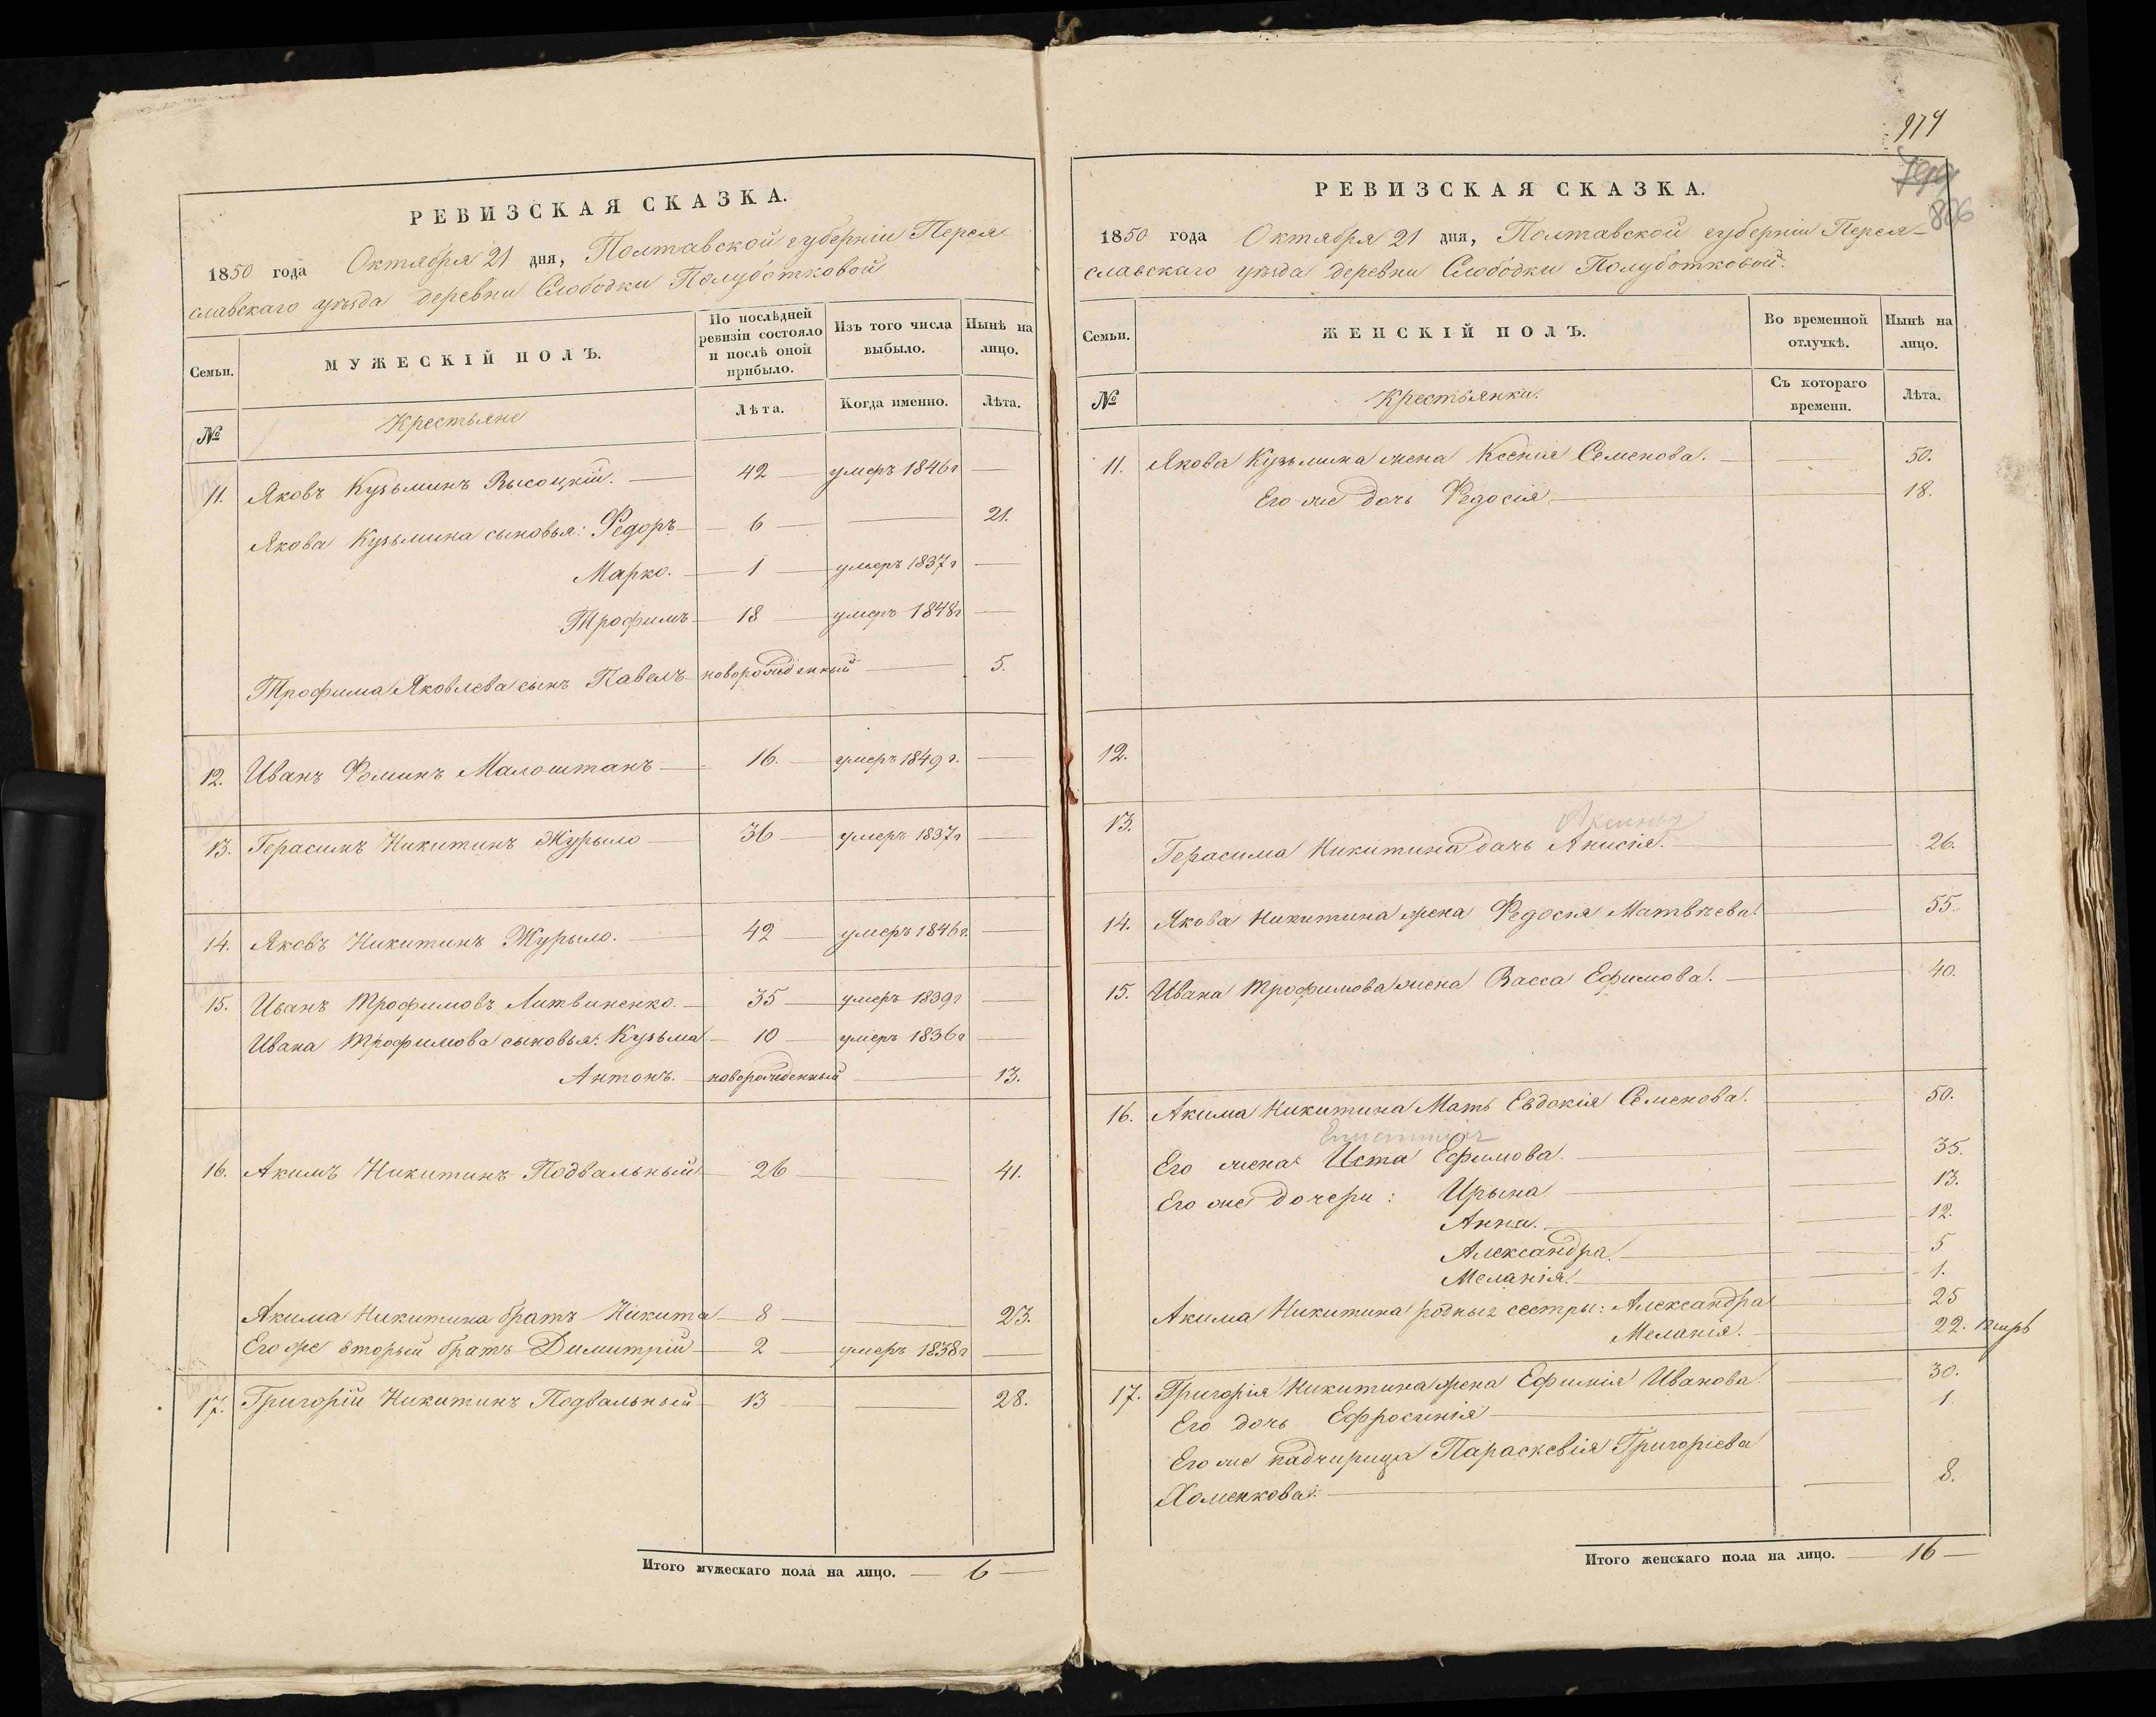 РЕВИЗСКАЯ СКАЗКА.
1850 года Октября 21 дня, Полтавской губерніи Перея
славскаго уѣзда деревни Слободки Полуботковой
Семьи.
МУЖЕСКІЙ ПОЛЪ.
По послѣдней ревизіи состояло и послѣ оной прибыло.
Изъ того числа выбыло.
Нынѣ на лицо.
№
Крестьяне
Лѣта.
Когда именно.
Лѣта.
11. Яковъ Кузьминъ Высоцкій. 42 умеръ 1846 г
Якова Кузьмина сыновья: Федоръ 6 21.
Марко. 1 умеръ 1837 г
Трофимъ 18 умеръ 1848 г
Трофима Яковлева сынъ Павелъ новорожденный 5.
12. Иванъ Фоминъ Малоштанъ 16. умеръ 1849 г.
13. Герасимъ Никитинъ Журыло 36 умеръ 1837 г
14. Яковъ Никитинъ Журыло. 42 умеръ 1846 г.
15. Иванъ Трофимовъ Литвиненко. 35 умеръ 1839 г
Ивана Трофимова сыновья: Кузьма 10 умеръ 1836 г
Антонъ. новорожденный 13.
16. Акимъ Никитинъ Подвальный 26 41.
Акима Никитина братъ Никита 8 23.
Его же вторый братъ Димитрій 2 умеръ 1838 г
17. Григорій Никитинъ Подвальный 13 28.
Итого мужескаго пола на лицо. 6
974
799
806
РЕВИЗСКАЯ СКАЗКА.
1850 года Октября 21 дня, Полтавской губерніи Перея-
славскаго уѣзда деревни Слободки Полуботковой.
Семьи.
ЖЕНСКІЙ ПОЛЪ.
Во временной отлучкѣ.
Нынѣ на лицо.
№
Крестьянки.
Съ котораго времени.
Лѣта.
11. Якова Кузьмина жена Ксенія Семенова. 50.
Его же дочь Федосія 18.
12.
13.
Герасима Никитина дочь Анисія. 26.
14. Якова Никитина жена Федосія Матвѣева. 55.
15. Ивана Трофимова жена Васса Ефимова. 40.
16. Акима Никитина Мать Евдокія Семенова. 50.
Его жена Иста Ефимова. 35.
Его же дочери: Ирына 13.
Анна. 12.
Александра. 5
Меланія. 1.
Акима Никитина родные сестры: Александра 25
Меланія. 22.
17. Григорія Никитина жена Ефимія Иванова. 30.
Его дочь Ефросинія 1.
Его же падчирица Параскевія Григоріева
Хоменкова. 8.
Итого женскаго пола на лицо. 16